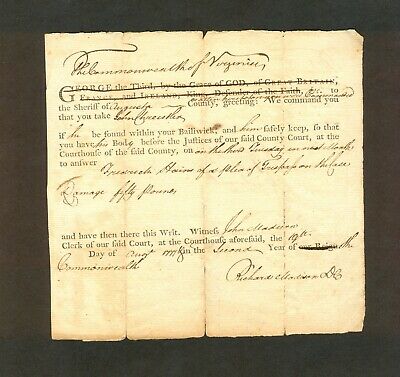 The Commonwealth of Virginia
GEORGE the Third, by the Grace of GOD, of GREAT-BRITAIN,
FRANCE and IRELAND, King, Defender of the Faith, &c. to
the Sheriff of Augusta County, greeting: We command you
that you take John
if he be found within your Bailiwick, and him safely keep, so that
you have his Body before the Justices of our said County Court, at the
Courthouse of the said County, on the third Tuesday in next Month
to answer Frederick Hains of a plea of Trespass on the Case
Damage fifty pounds
and have then there this Writ. Witness John Madison
Clerk of our said Court, at the Courthouse aforesaid, the 19th
Day of Augt 1777 in the Second Year of our Reign the
Commonwealth
Richard Madison DC